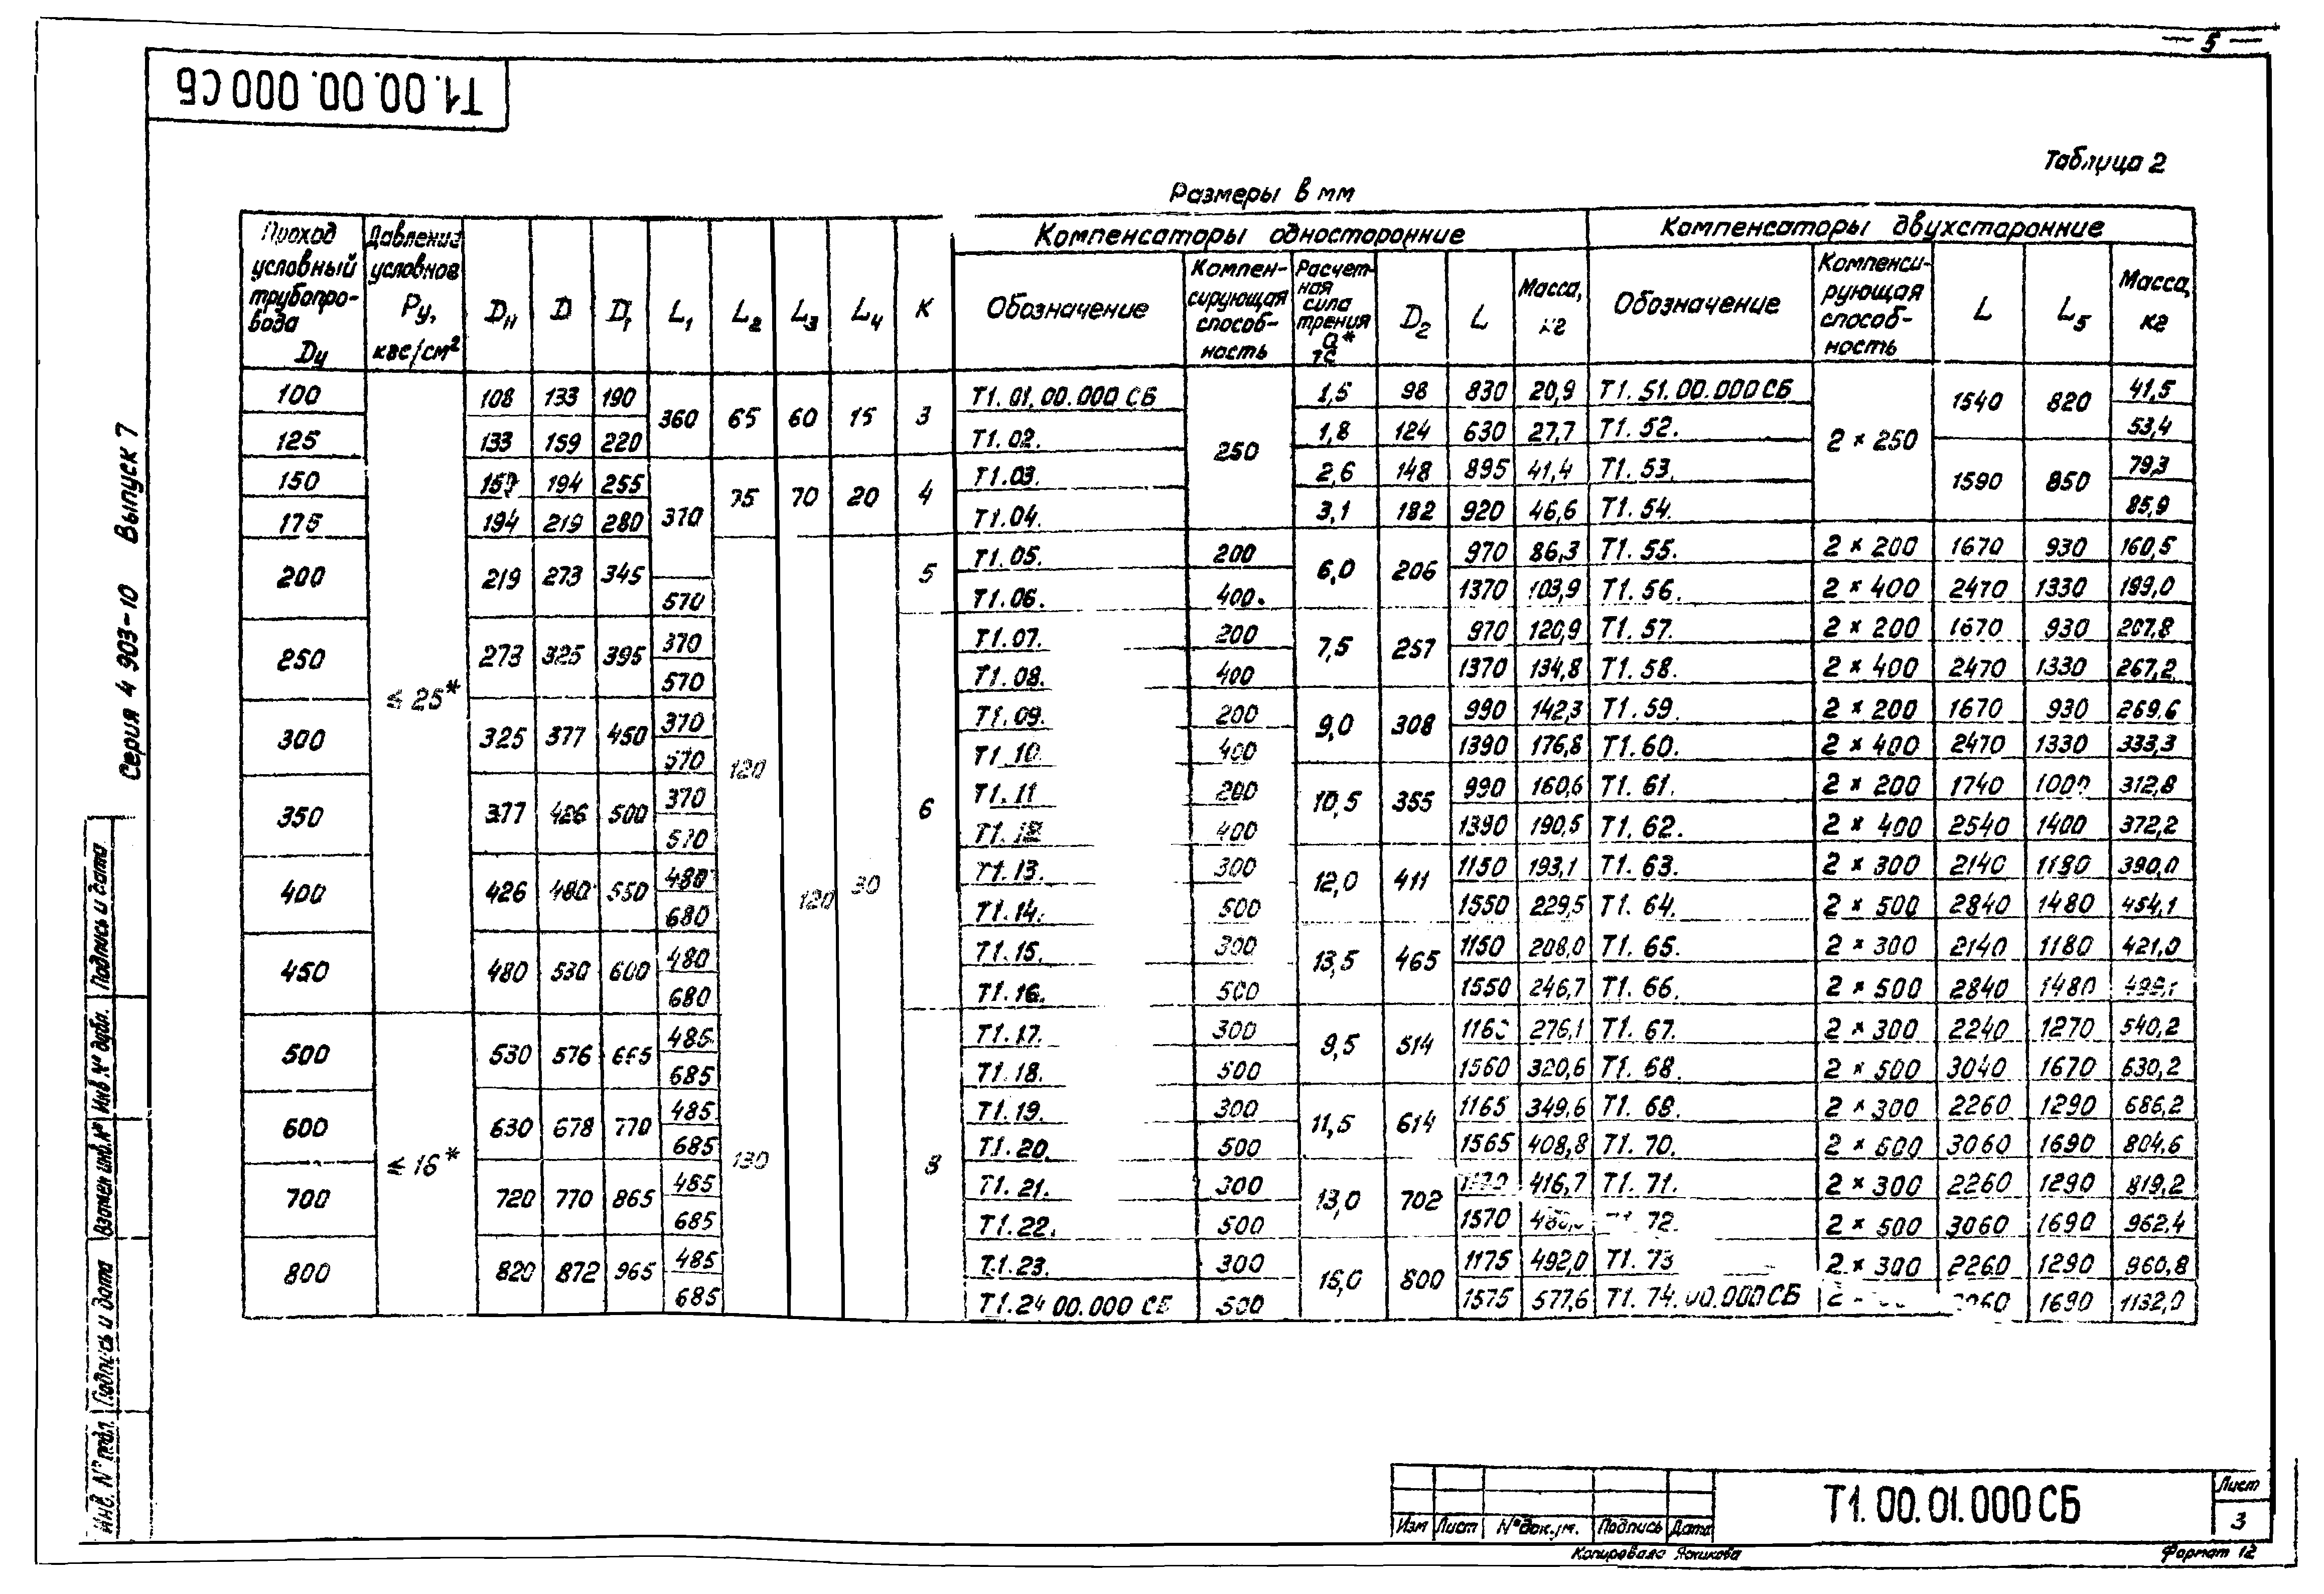 — 5 —
Т1.00.00.000 СБ
Таблица 2
Размеры в мм
Проход условный трубопровода Dу
Давление условное Ру, кгс/см²
Dн D D₁ L₁ L₂ L₃ L₄ К
Компенсаторы односторонние
Компенсаторы двухсторонние
Обозначение
Компенсирующая способность
Расчетная сила трения Q* тс
D₂ L Масса, кг
Обозначение
Компенсирующая способность
L L₅ Масса, кг
100 108 133 190 360 65 60 15 3 Т1.01.00.000 СБ 250 1,5 98 830 20,9 Т1.51.00.000 СБ 2 × 250 1540 820 41,5
125 133 159 220 Т1.02. 1,8 124 630 27,7 Т1.52. 53,4
150 159 194 255 370 75 70 20 4 Т1.03. 2,6 148 895 41,4 Т1.53. 1590 850 79,3
175 194 219 280 Т1.04. 3,1 182 920 46,6 Т1.54. 85,9
200 219 273 345 5 Т1.05. 200 6,0 206 970 86,3 Т1.55. 2 × 200 1670 930 160,5
570 Т1.06. 400. 1370 103,9 Т1.56. 2 × 400 2470 1330 199,0
250 273 325 395 370 Т1.07. 200 7,5 257 970 120,9 Т1.57. 2 × 200 1670 930 207,8
570 Т1.08. 400 1370 134,8 Т1.58. 2 × 400 2470 1330 267,2
≤ 25*
300 325 377 450 370 Т1.09. 200 9,0 308 990 142,3 Т1.59. 2 × 200 1670 930 269,6
570 120 Т1.10. 400 1390 176,8 Т1.60. 2 × 400 2470 1330 333,3
350 377 426 500 370 6 Т1.11 200 10,5 355 990 160,6 Т1.61. 2 × 200 1740 1000 312,8
570 Т1.12 400 1390 190,5 Т1.62. 2 × 400 2540 1400 372,2
400 426 480 550 480 120 30 Т1.13. 300 12,0 411 1150 193,1 Т1.63. 2 × 300 2140 1180 390,0
680 Т1.14. 500 1550 229,5 Т1.64. 2 × 500 2840 1480 454,1
450 480 530 600 480 Т1.15. 300 13,5 465 1150 208,0 Т1.65. 2 × 300 2140 1180 421,0
680 Т1.16. 500 1550 246,7 Т1.66. 2 × 500 2840 1480
500 530 576 665 485 Т1.17. 300 9,5 514 276,1 Т1.67. 2 × 300 2240 1270 540,2
685 Т1.18. 500 1560 320,6 Т1.68. 2 × 500 3040 1670 630,2
600 630 678 770 485 Т1.19. 300 11,5 614 1165 349,6 Т1.68. 2 × 300 2260 1290 686,2
685 130 8 Т1.20. 500 1565 408,8 Т1.70. 2 × 600 3060 1690 804,6
≤ 16*
700 720 770 865 485 Т1.21. 300 13,0 702 416,7 Т1.71. 2 × 300 2260 1290 819,2
685 Т1.22. 500 1570 72. 2 × 500 3060 1690 962,4
800 820 872 965 485 Т1.23. 300 15,0 800 1175 492,0 Т1.73 2 × 300 2260 1290 960,8
685 Т1.24 00.000 СБ 500 1575 577,6 Т1.74.00.000 СБ 1690 1132,0
Серия 4 903-10 Выпуск 7
Подпись и дата
Инв № дубл.
Взамен инв.№
Подпись и дата
Инв. № подл.
Изм Лист № докум. Подпись Дата
Т1.00.01.000 СБ
Лист
3
Копировала
Формат 12